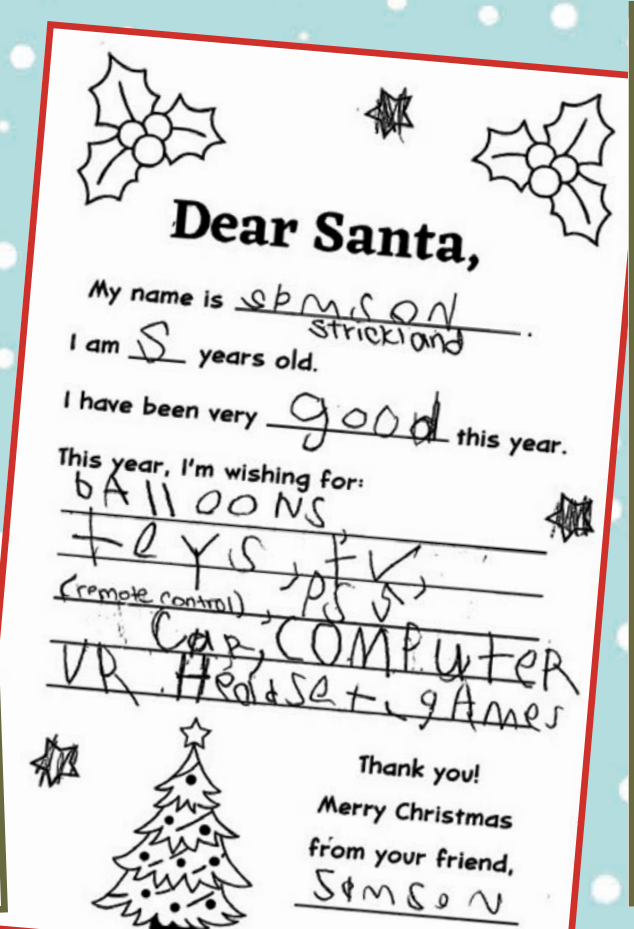 Dear Santa,
My name is samson.
strickland
I am 5 years old.
I have been very good this year.
This year, I'm wishing for:
bAllOONS,
teys, tv,
(remote control), PS5,
Car, COMPutER
VR Headset, gAmes
Thank you!
Merry Christmas
from your friend,
SamSoN